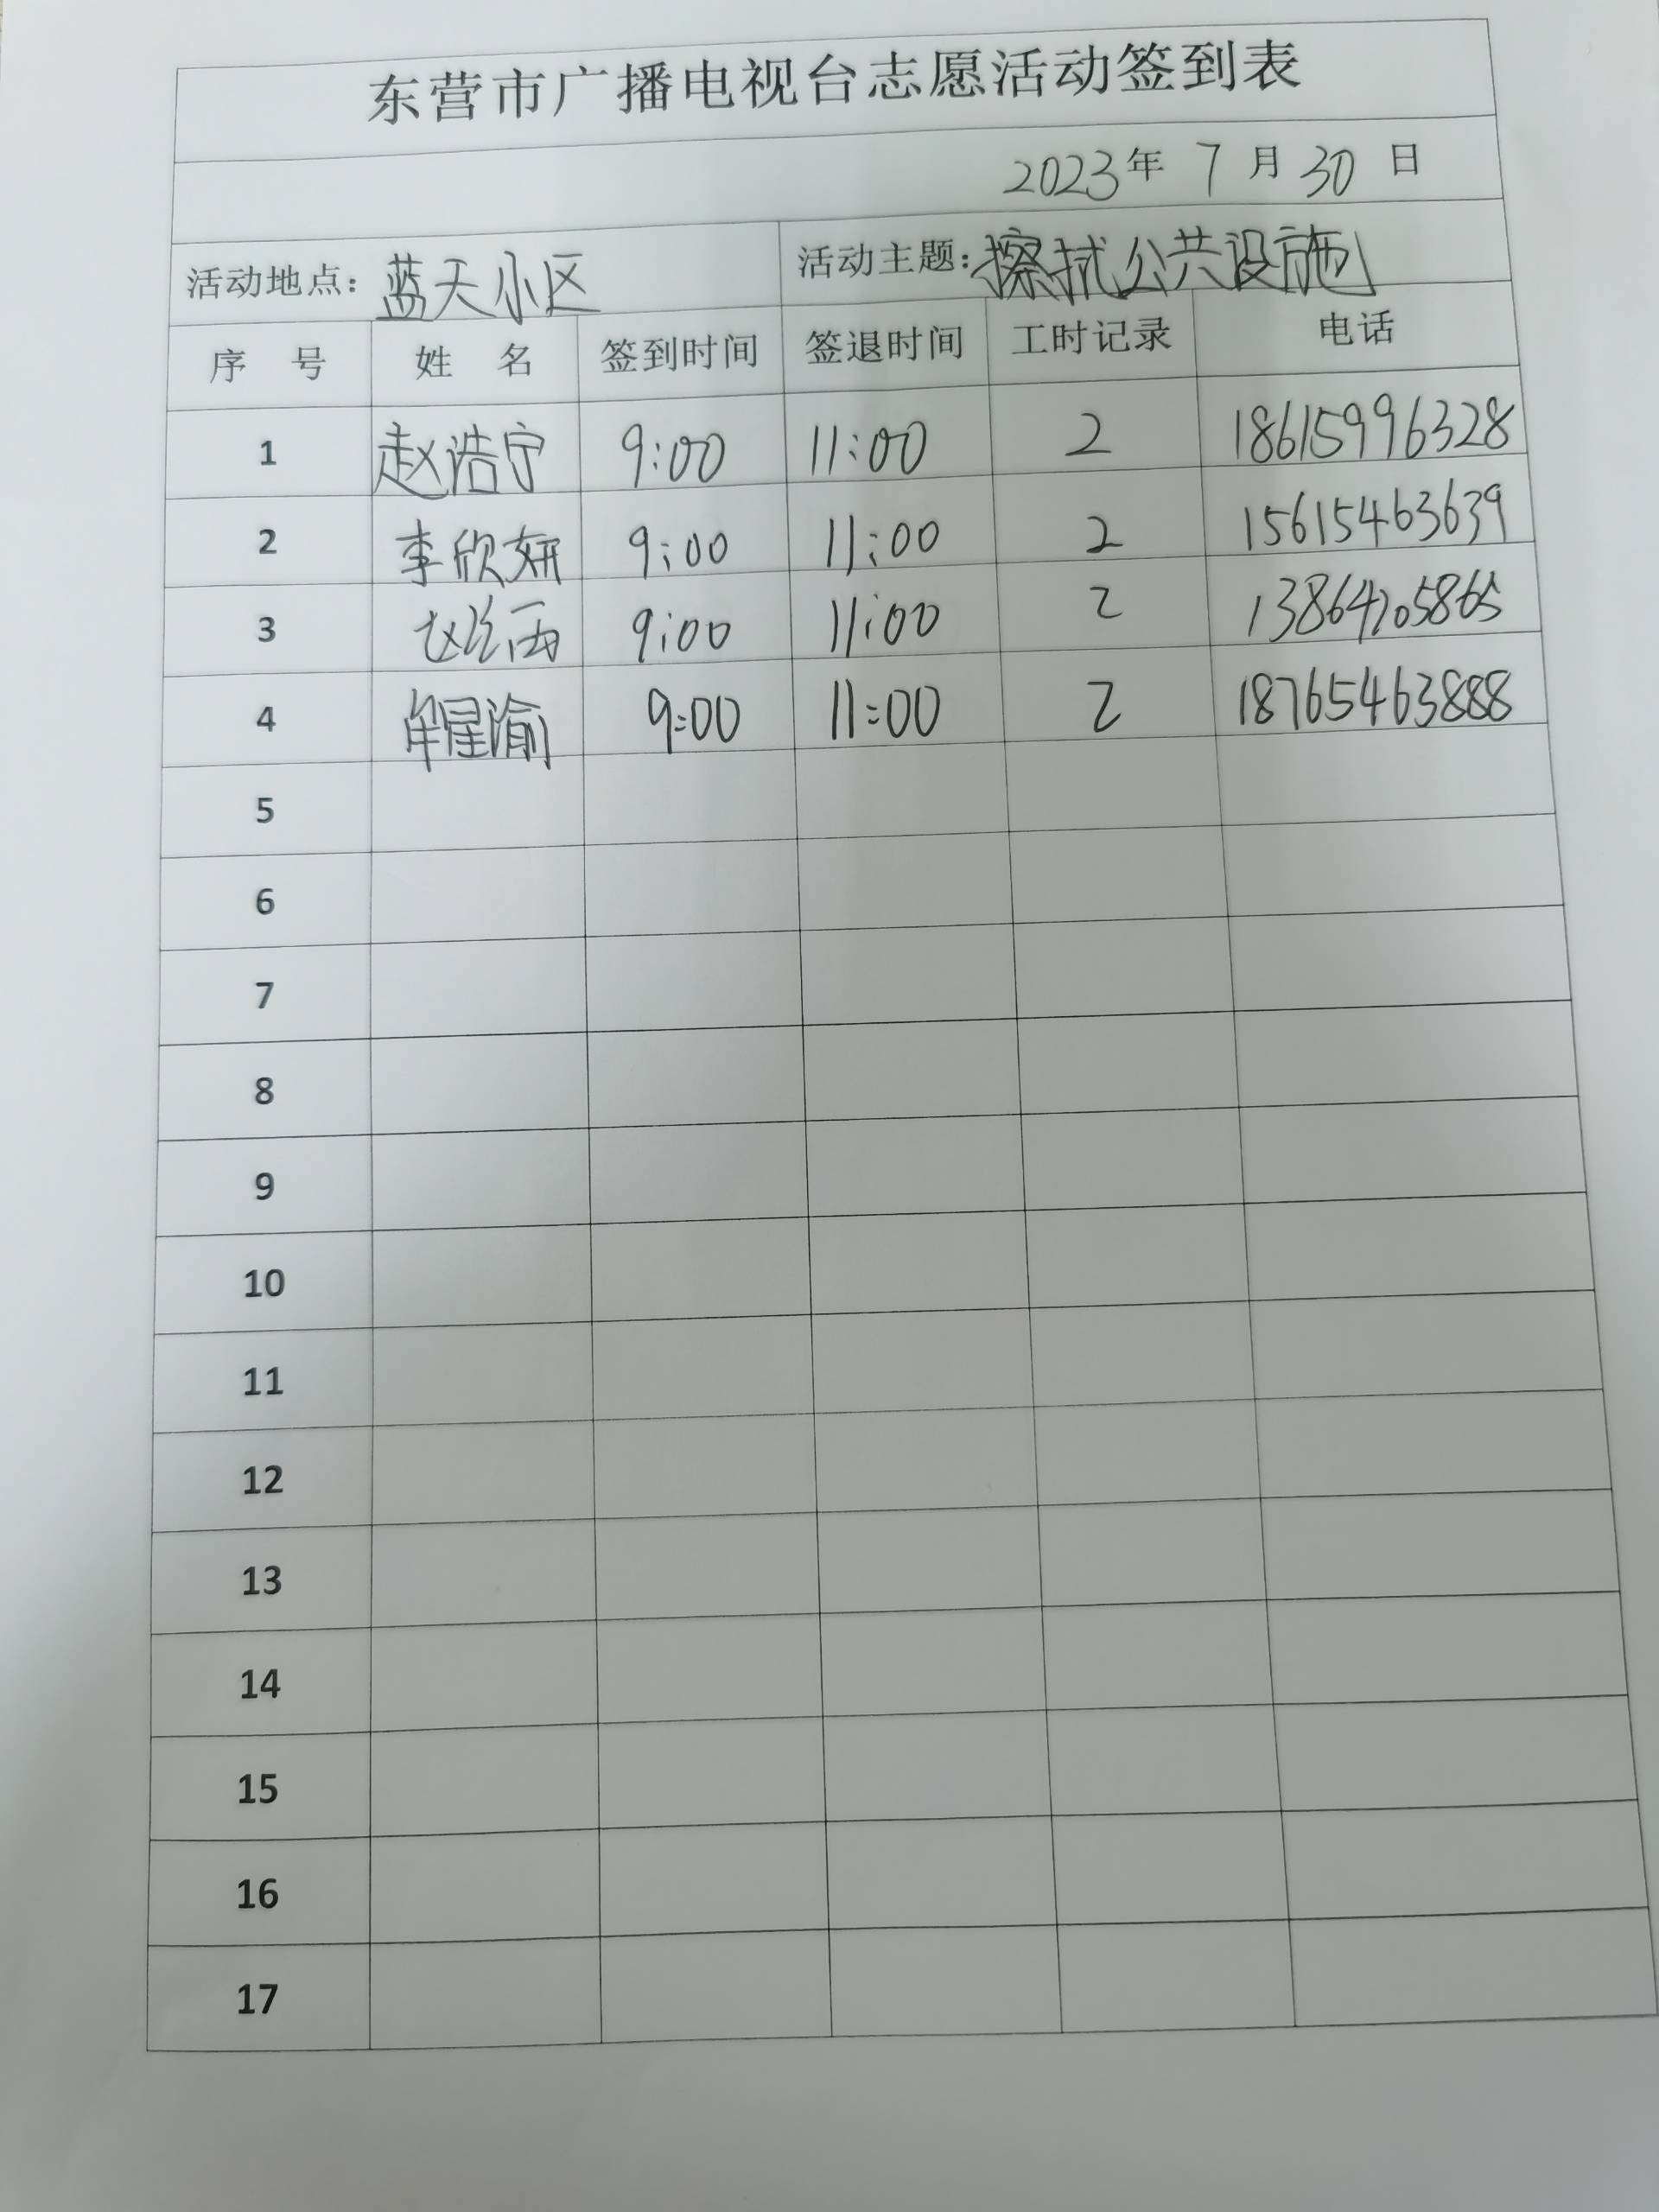 东营市广播电视台志愿活动签到表
2023年 7 月 30 日
活动地点：蓝天小区 活动主题：擦拭公共设施
序 号 姓 名 签到时间 签退时间 工时记录 电话
1 赵浩宁 9:00 11:00 2 18615996328
2 李欣妍 9:00 11:00 2 15615463639
3 9:00 11:00 2 13864705865
4 牟星渝 9:00 11:00 2 18765463888
5
6
7
8
9
10
11
12
13
14
15
16
17